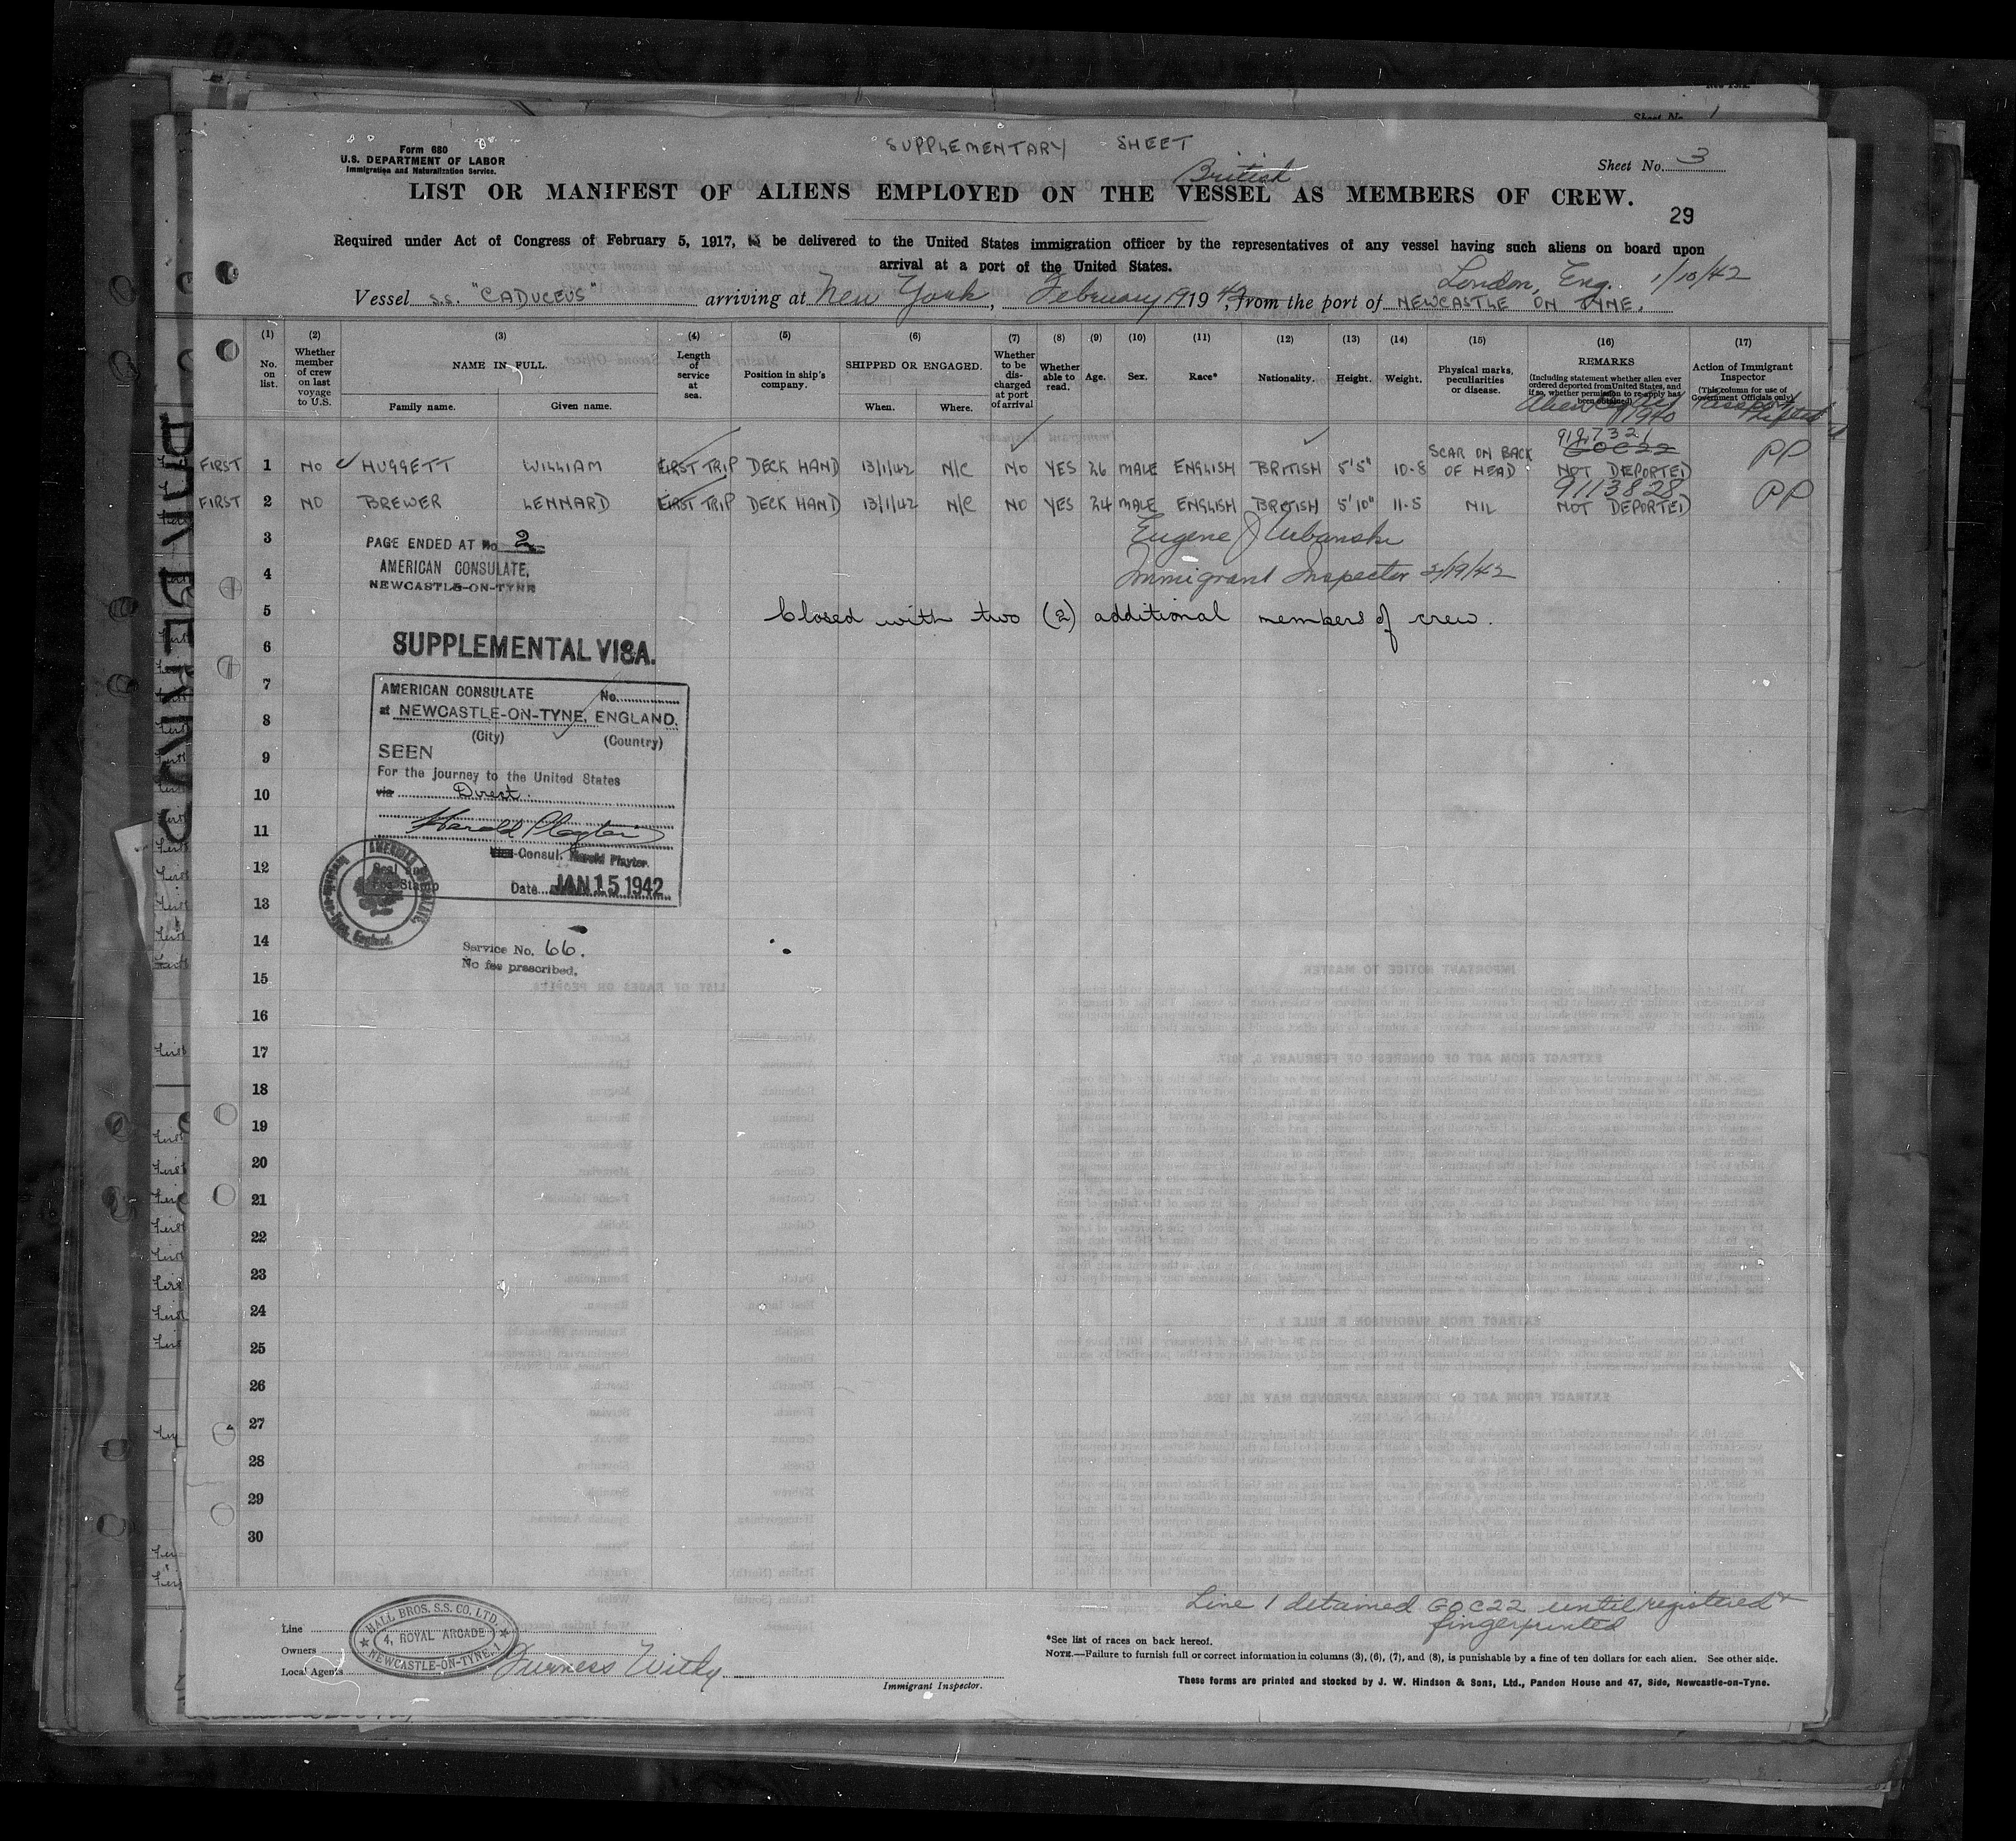 Form 680
U.S. DEPARTMENT OF LABOR
Immigration and Naturalization Service.
SUPPLEMENTARY SHEET
Sheet No. 3
British
LIST OR MANIFEST OF ALIENS EMPLOYED ON THE VESSEL AS MEMBERS OF CREW.
29
Required under Act of Congress of February 5, 1917, to be delivered to the United States immigration officer by the representatives of any vessel having such aliens on board upon
arrival at a port of the United States.
London, Eng. 1/10/42
Vessel S.S. "CADUCEUS" arriving at New York, February 19 1942, from the port of NEWCASTLE ON TYNE.
(1) (2) (3) (4) (5) (6) (7) (8) (9) (10) (11) (12) (13) (14) (15) (16) (17)
No. on list.
Whether member of crew on last voyage to U.S.
NAME IN FULL.
Family name. Given name.
Length of service at sea.
Position in ship's company.
SHIPPED OR ENGAGED.
When. Where.
Whether to be discharged at port of arrival
Whether able to read.
Age.
Sex.
Race*
Nationality.
Height.
Weight.
Physical marks, peculiarities or disease.
REMARKS
(Including statement whether alien ever ordered deported from United States, and if so, whether permission to re-apply has been obtained)
Action of Immigrant Inspector
(This column for use of Government Officials only)
1940
9127321
GOC22
FIRST 1 NO HUGGETT WILLIAM FIRST TRIP DECK HAND 13/1/42 N/C NO YES 26 MALE ENGLISH BRITISH 5'5" 10-8 SCAR ON BACK OF HEAD NOT DEPORTED PP
9113828
FIRST 2 NO BREWER LENNARD FIRST TRIP DECK HAND 13/1/42 N/C NO YES 24 MALE ENGLISH BRITISH 5'10" 11-5 NIL NOT DEPORTED PP
3
Eugene J Urbanski
PAGE ENDED AT No 2
AMERICAN CONSULATE,
NEWCASTLE-ON-TYNE
4
Immigrant Inspector 2/19/42
5
Closed with two (2) additional members of crew.
6
SUPPLEMENTAL VISA.
7
AMERICAN CONSULATE No.
8
at NEWCASTLE-ON-TYNE, ENGLAND.
(City) (Country)
9
SEEN
For the journey to the United States
10
via Direct.
11
Harold Playter
12
Vice-Consul. Harold Playter.
Seal and Fee Stamp
AMERICAN CONSULATE, Newcastle-on-Tyne, England.
Date JAN 15 1942
13
14
Service No. 66.
No fee prescribed.
15
16
17
18
19
20
21
22
23
24
25
26
27
28
29
30
Line 1 detained GOC22 until registered &
fingerprinted
Line
Owners
Local Agents Furness Withy
HALL BROS. S.S. CO. LTD.
4, ROYAL ARCADE
NEWCASTLE-ON-TYNE, 1
Immigrant Inspector.
*See list of races on back hereof.
NOTE.—Failure to furnish full or correct information in columns (3), (6), (7), and (8), is punishable by a fine of ten dollars for each alien. See other side.
These forms are printed and stocked by J. W. Hindson & Sons, Ltd., Pandon House and 47, Side, Newcastle-on-Tyne.